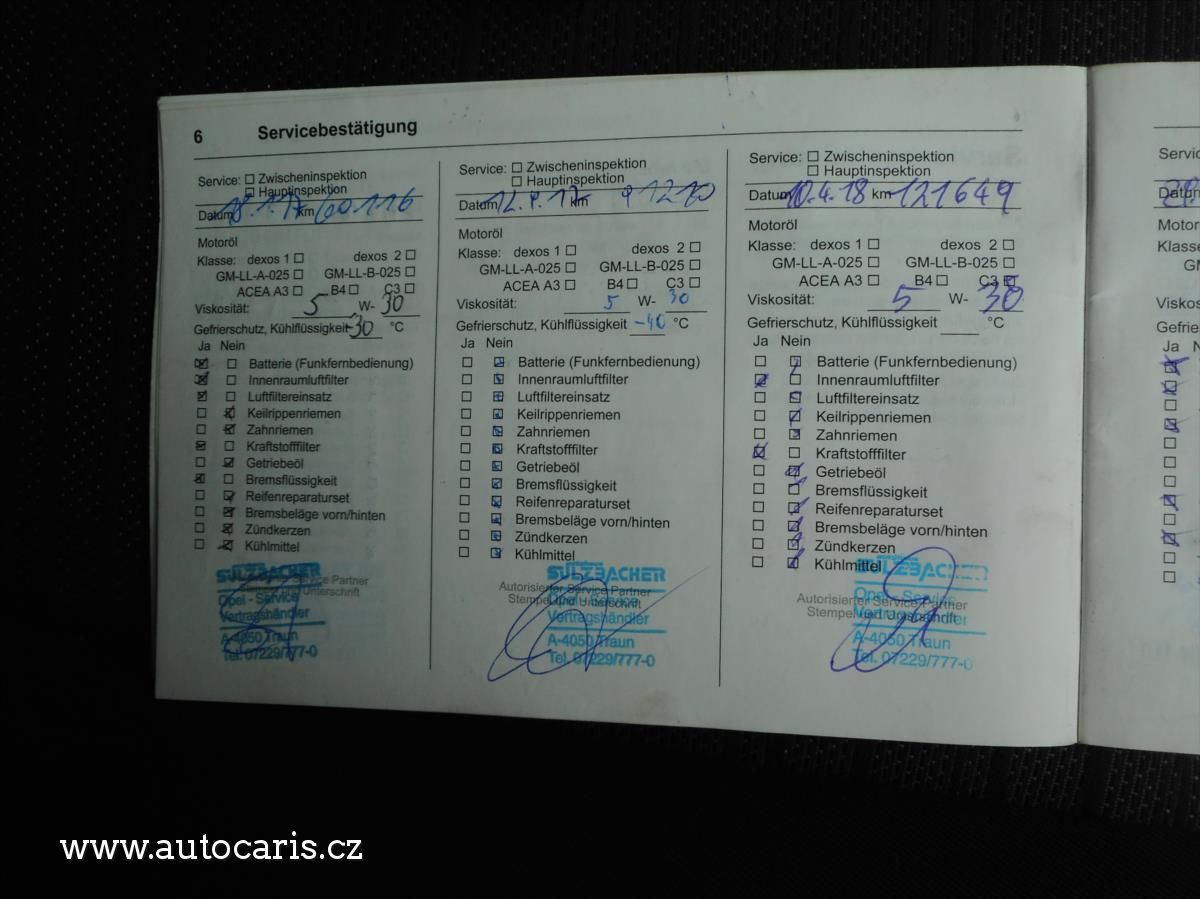 6 Servicebestätigung
Service: Zwischeninspektion
Hauptinspektion
Datum 18.1.17 km 60116
Motoröl
Klasse: dexos 1 dexos 2
GM-LL-A-025 GM-LL-B-025
ACEA A3 B4 C3
Viskosität: 5 W- 30
Gefrierschutz, Kühlflüssigkeit -30 °C
Ja Nein
Batterie (Funkfernbedienung)
Innenraumluftfilter
Luftfiltereinsatz
Keilrippenriemen
Zahnriemen
Kraftstofffilter
Getriebeöl
Bremsflüssigkeit
Reifenreparaturset
Bremsbeläge vorn/hinten
Zündkerzen
Kühlmittel
SULZBACHER
Service Partner
Unterschrift
Opel - Service
Vertragshändler
A-4050 Traun
Tel. 07229/777-0
Service: Zwischeninspektion
Hauptinspektion
Datum km 91210
Motoröl
Klasse: dexos 1 dexos 2
GM-LL-A-025 GM-LL-B-025
ACEA A3 B4 C3
Viskosität: 5 W- 30
Gefrierschutz, Kühlflüssigkeit -40 °C
Ja Nein
Batterie (Funkfernbedienung)
Innenraumluftfilter
Luftfiltereinsatz
Keilrippenriemen
Zahnriemen
Kraftstofffilter
Getriebeöl
Bremsflüssigkeit
Reifenreparaturset
Bremsbeläge vorn/hinten
Zündkerzen
Kühlmittel
SULZBACHER
Autorisierter Service Partner
Stempel und Unterschrift
Opel - Service
Vertragshändler
A-4050 Traun
Tel. 07229/777-0
Service: Zwischeninspektion
Hauptinspektion
Datum 10.4.18 km 121649
Motoröl
Klasse: dexos 1 dexos 2
GM-LL-A-025 GM-LL-B-025
ACEA A3 B4 C3
Viskosität: 5 W- 30
Gefrierschutz, Kühlflüssigkeit °C
Ja Nein
Batterie (Funkfernbedienung)
Innenraumluftfilter
Luftfiltereinsatz
Keilrippenriemen
Zahnriemen
Kraftstofffilter
Getriebeöl
Bremsflüssigkeit
Reifenreparaturset
Bremsbeläge vorn/hinten
Zündkerzen
Kühlmittel
SULZBACHER
Autorisierter Service Partner
Stempel und Unterschrift
Opel - Service
Vertragshändler
A-4050 Traun
Tel. 07229/777-0
Motoröl
Klasse:
Ja
www.autocaris.cz